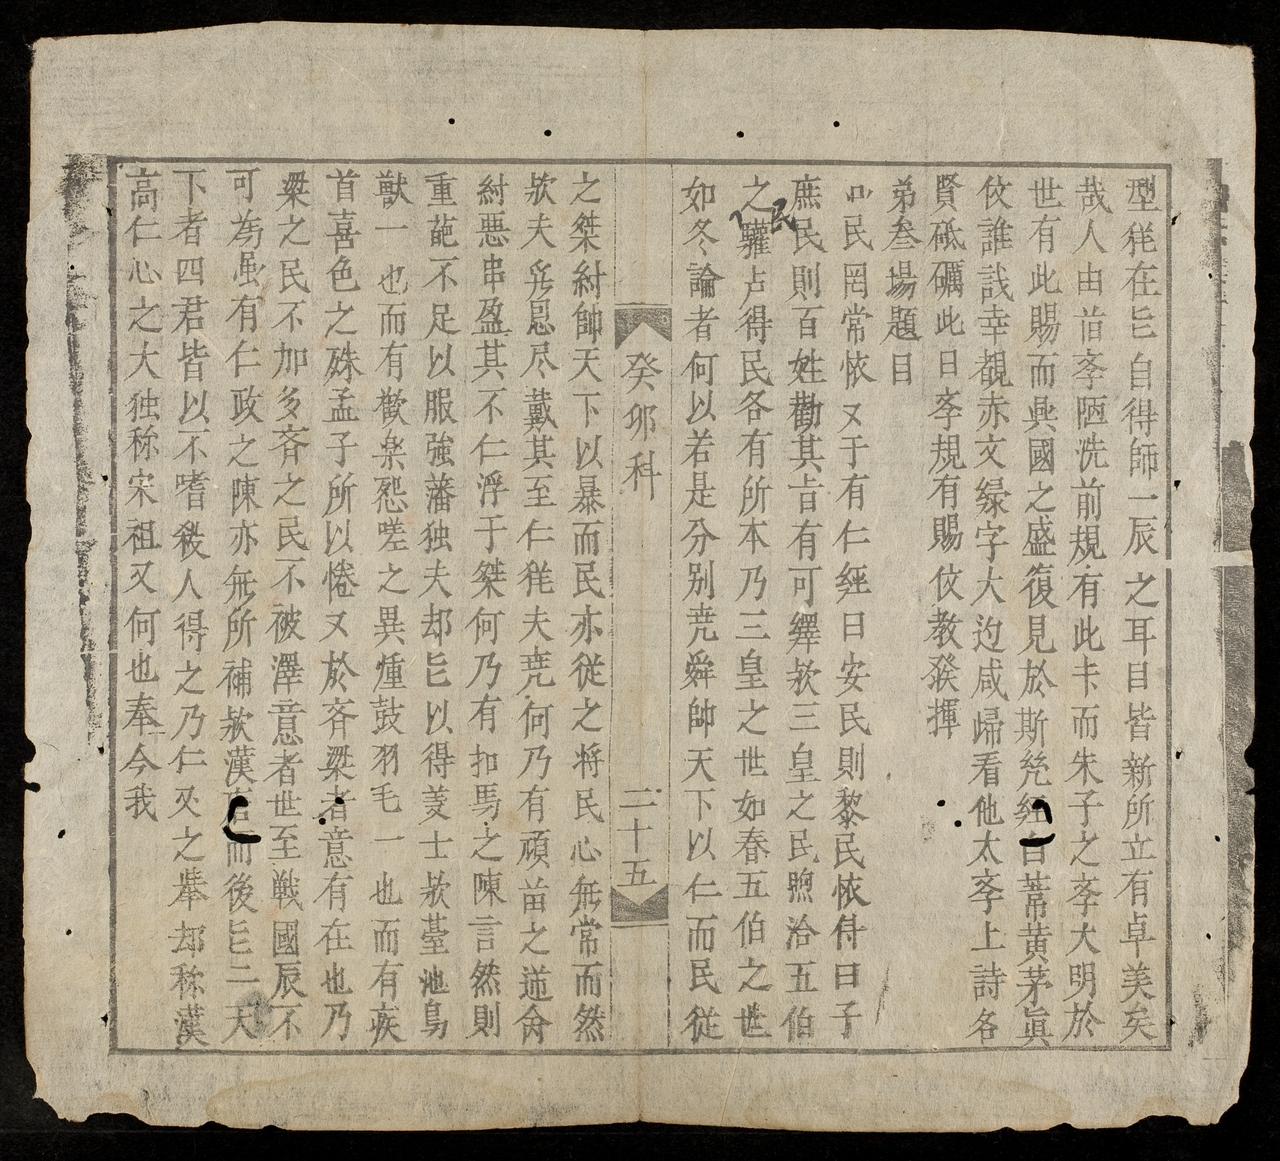 型羐在㠯自得師一辰之耳目皆新所立有卓美矣
哉人由旹斈陋洗前規有此卡而朱子之斈大明於
世有此賜而興國之盛復見於斯㷠經白葦黄茅眞
伩誰戠幸覩赤文綠字大边咸歸看他太斈上詩各
賢砥礪此日斈規有賜伩教發揮
弟叁場題目
民罔常懐又于有仁經曰安民則黎民懐侍曰子
庶民則百姓勸其㫖有可繹欤三皇之民煦洽五伯
之驩卢得民各有所本乃三皇之世如春五伯之世
民
如冬論者何以若是分别尭舜帥天下以仁而民從
癸卯科
二十五
之桀紂帥天下以暴而民亦從之将民心無常而然
欤夫㒵息尽戴其至仁羐夫尭何乃有頑苗之逆命
紂悪串盈其不仁浮于桀何乃有扣馬之陳言然則
重葩不足以服強藩独夫却㠯以得羑士欤䑓池鳥
獸一也而有歡楽怨嗟之異煄鼓羽毛一也而有疾
首喜色之殊孟子所以惓又於斉梁者意有在也乃
梁之民不加多斉之民不被澤意者世至戦國辰不
可為虽有仁政之陳亦無所補欤漢而後㠯二天
下者四君皆以不嗜殺人得之乃仁㕛之举却称漢
高仁心之大独称宋祖又何也奉今我